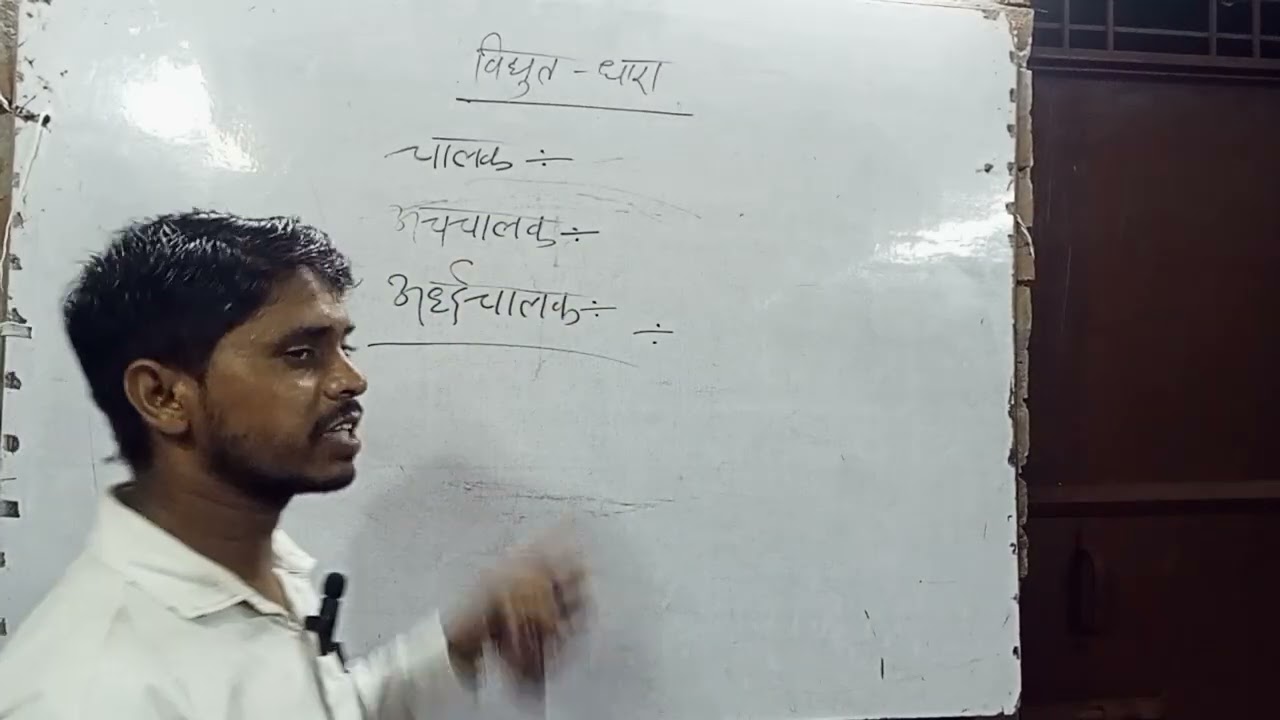 विद्युत - धारा
चालक ÷
अचचालक ÷
अर्धचालक ÷
÷